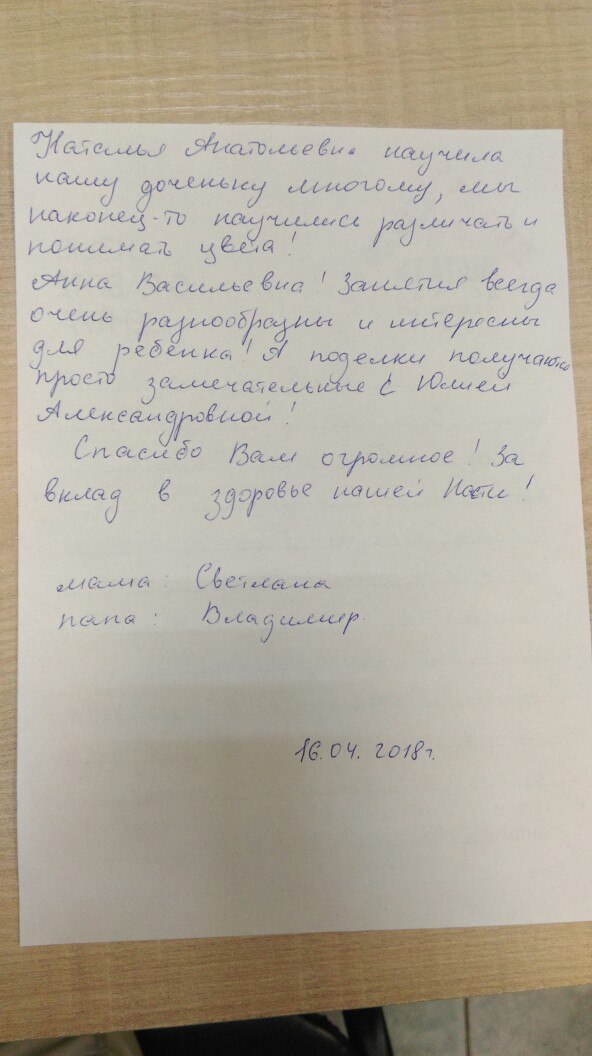 Наталья Анатольевна научила
нашу доченьку многому, мы
наконец-то научились различать и
понимать цвета!
Анна Васильевна! Занятия всегда
очень разнообразны и интересны
для ребенка! А поделки получаются
просто замечательные с Юлией
Александровной!
Спасибо Вам огромное! За
вклад в здоровье нашей Насти!
мама: Светлана
папа: Владимир
16.04.2018г.